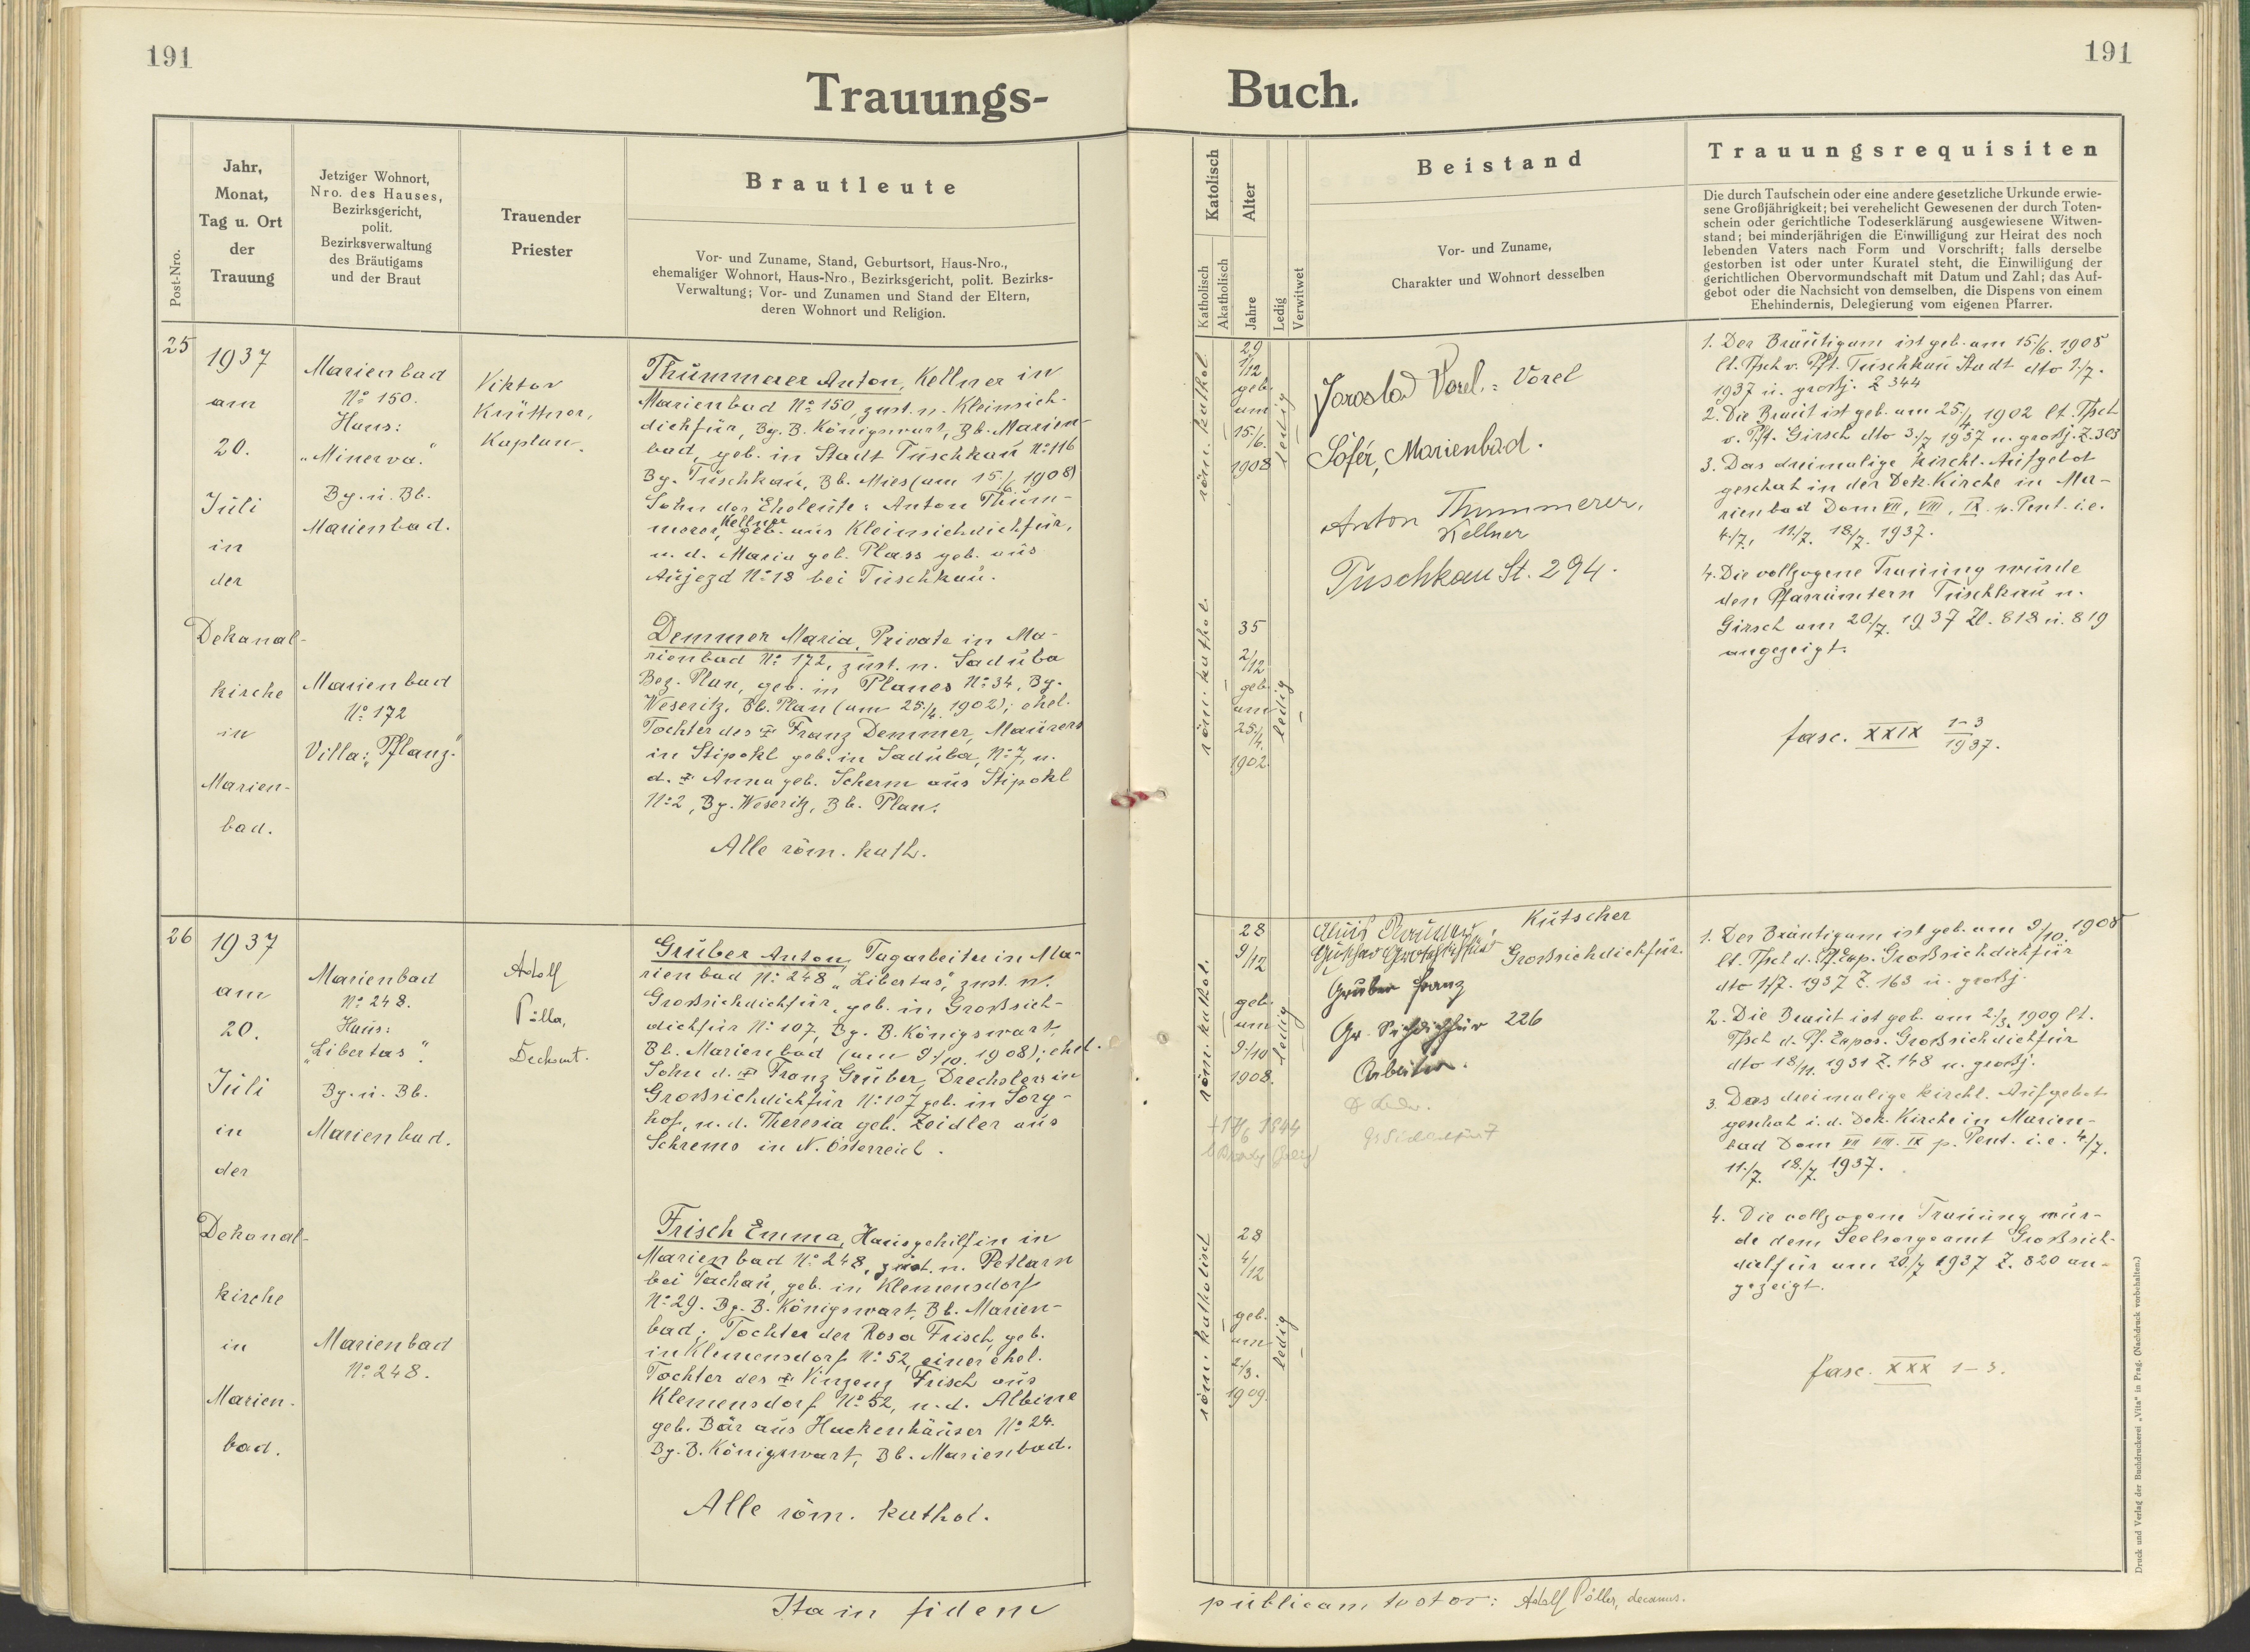 191
191
Trauungs-
Buch.
Post-Nro.
Jahr,
Monat,
Tag u. Ort
der
Trauung
Jetziger Wohnort,
Nro. des Hauses,
Bezirksgericht,
polit.
Bezirksverwaltung
des Bräutigams
und der Braut
Trauender
Priester
Brautleute
Vor- und Zuname, Stand, Geburtsort, Haus-Nro.,
ehemaliger Wohnort, Haus-Nro., Bezirksgericht, polit. Bezirks-
Verwaltung; Vor- und Zunamen und Stand der Eltern,
deren Wohnort und Religion.
Katolisch
Katholisch
Akatholisch
Alter
Jahre
Ledig
Verwitwet
Beistand
Vor- und Zuname,
Charakter und Wohnort desselben
Trauungsrequisiten
Die durch Taufschein oder eine andere gesetzliche Urkunde erwie-
sene Großjährigkeit; bei verehelicht Gewesenen der durch Toten-
schein oder gerichtliche Todeserklärung ausgewiesene Witwen-
stand; bei minderjährigen die Einwilligung zur Heirat des noch
lebenden Vaters nach Form und Vorschrift; falls derselbe
gestorben ist oder unter Kuratel steht, die Einwilligung der
gerichtlichen Obervormundschaft mit Datum und Zahl; das Auf-
gebot oder die Nachsicht von demselben, die Dispens von einem
Ehehindernis, Delegierung vom eigenen Pfarrer.
25
1937
am
20.
Juli
in
der
Dekanal-
kirche
in
Marien-
bad.
Marienbad
No 150.
Haus:
"Minerva."
Bg. u. Bb.
Marienbad.
Marienbad
No 172
Villa: "Pflanz."
Viktor
Krüttner,
Kaplan.
Thummerer Anton, Kellner in
Marienbad No 150, zust. n. Kleinsich-
dichfür, Bg. B. Königswart, Bb. Marien-
bad, geb. in Stadt Tuschkau No 116
Bg. Tuschkau, Bb. Mies (am 15./6. 1908)
Sohn der Eheleute: Anton Thum-
merer, Kellner geb. aus Kleinsichdichfür,
u. d. Maria geb. Plass geb. aus
Aujezd No 18 bei Tuschkau.
Demmer Maria, Private in Ma-
rienbad No 172, zust. n. Saduba
Bez. Plan, geb. in Planes No 34, Bg.
Weseritz, Bb. Plan (am 25./4. 1902); ehel.
Tochter des † Franz Demmer, Maurers
in Stipokl geb. in Saduba, No 7, u.
d. † Anna geb. Scherm aus Stipokl
No 2, Bg. Weseritz, Bb. Plan.
Alle röm. kath.
röm. kathol.
29
1/12
geb.
am
15./6.
1908
ledig
röm. kathol.
35
2/12
geb.
am
25./4.
1902.
ledig
Jaroslav Vorel.: Vorel
Šofér, Marienbad.
Anton Thummerer,
Kellner
Tuschkau St. 294.
1. Der Bräutigam ist geb. am 15./6. 1908
lt. Tfsch v. Pft. Tuschkau Stadt dto 1./7.
1937 u. großj. Z 344
2. Die Braut ist geb. am 25./4. 1902 lt. Tfsch
v. Pft. Girsch dto 3./7 1937 u. großj. Z. 303
3. Das dreimalige kirchl. Aufgebot
geschah in der Dek. Kirche in Ma-
rienbad Dom VII, VIII, IX. p. Pent. i. e.
4./7., 11./7. 18./7. 1937.
4. Die vollzogene Trauung wurde
den Pfarrämtern Tuschkau u.
Girsch am 20./7. 1937 Zl. 818 u. 819
angezeigt.
fasc. XXIX 1-3
1937.
26
1937
am
20.
Juli
in
der
Dekanal-
kirche
in
Marien-
bad.
Marienbad
No 248.
Haus:
"Libertas".
Bg. u. Bb.
Marienbad.
Marienbad
No 248.
Adolf
Pöller,
Dechant.
Gruber Anton, Tagarbeiter in Ma-
rienbad No 248 "Libertas", zust. n.
Großsichdichfür, geb. in Großsich-
dichfür No 107, Bg. B. Königswart,
Bb. Marienbad (am 9./10. 1908); ehel.
Sohn d. † Franz Gruber, Drechslers in
Großsichdichfür No 107 geb. in Sorg-
hof, u. d. Theresia geb. Zeidler aus
Schrems in N. Österreich.
Frisch Emma, Hausgehilfin in
Marienbad No 248, zust. n. Petlarn
bei Tachau, geb. in Klemensdorf
No 29. Bg. B. Königswart, Bb. Marien-
bad; Tochter der Rosa Frisch, geb.
in Klemensdorf No 52, einer ehel.
Tochter des † Vinzenz Frisch aus
Klemensdorf No 52, u. d. Albine
geb. Bär aus Hackenhäuser No 24.
Bg. B. Königswart, Bb. Marienbad.
Alle röm. kathol.
röm. kathol.
28
9/12
geb.
am
9./10
1908.
ledig
1944
röm. katholisch
28
4/12
geb.
am
2./3.
1909.
ledig
Kutscher
Großsichdichfür.
Gruber Franz
Gr. Sichdichfür 226
Arbeiter.
1. Der Bräutigam ist geb. am 9/10. 1908
lt. Tfsch d. Pf. Exp. Großsichdichfür
dto 1./7. 1937 Z. 163 u. großj.
2. Die Braut ist geb. am 2./3. 1909 lt.
Tfsch d. Pf. Expos. Großsichdichfür
dto 18/11. 1931 Z. 148 u. großj.
3. Das dreimalige kirchl. Aufgebot
geschah i. d. Dek. Kirche in Marien-
bad Dom VII VIII. IX p. Pent. i. e. 4./7.
11./7. 18./7. 1937.
4. Die vollzogene Trauung wur-
de dem Seelsorgeamt Großsich-
dichfür am 20./7 1937 Z. 820 an-
gezeigt.
fasc. XXX 1-3.
Ita in fidem
publicam testor: Adolf Pöller, decanus.
Druck und Verlag der Buchdruckerei „Vita" in Prag. (Nachdruck vorbehalten.)